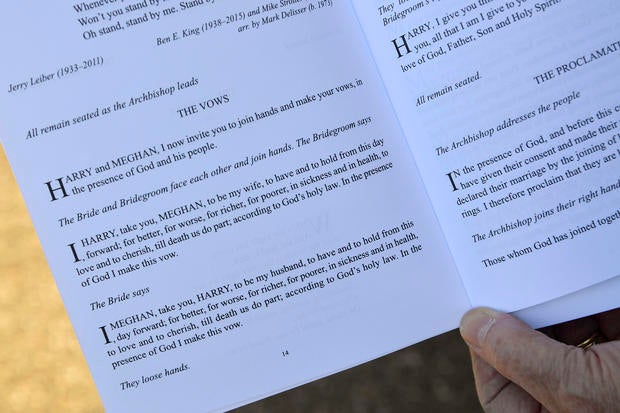 Whenever
Won't you stand by
Oh stand, stand by me. Stand
Ben E. King (1938–2015) and Mike
arr. by Mark Delisser (b. 197
Jerry Leiber (1933–2011)
All remain seated as the Archbishop leads
THE VOWS
HARRY and MEGHAN, I now invite you to join hands and make your vows, in
the presence of God and his people.
The Bride and Bridegroom face each other and join hands. The Bridegroom says
I HARRY, take you, MEGHAN, to be my wife, to have and to hold from this day
, forward; for better, for worse, for richer, for poorer, in sickness and in health, to
love and to cherish, till death us do part; according to God's holy law. In the presence
of God I make this vow.
The Bride says
I MEGHAN, take you, HARRY, to be my husband, to have and to hold from this
, day forward; for better, for worse, for richer, for poorer, in sickness and in health,
to love and to cherish, till death us do part; according to God's holy law. In the
presence of God I make this vow.
They loose hands.
14
They
Bridegroom's
HARRY, I give you thi
you, all that I am I give to y
love of God, Father, Son and Holy Spiri
All remain seated.
THE PROCLAMAT
The Archbishop addresses the people
IN the presence of God, and before this c
have given their consent and made their
declared their marriage by the joining of
rings. I therefore proclaim that they are
The Archbishop joins their right hand
Those whom God has joined togeth